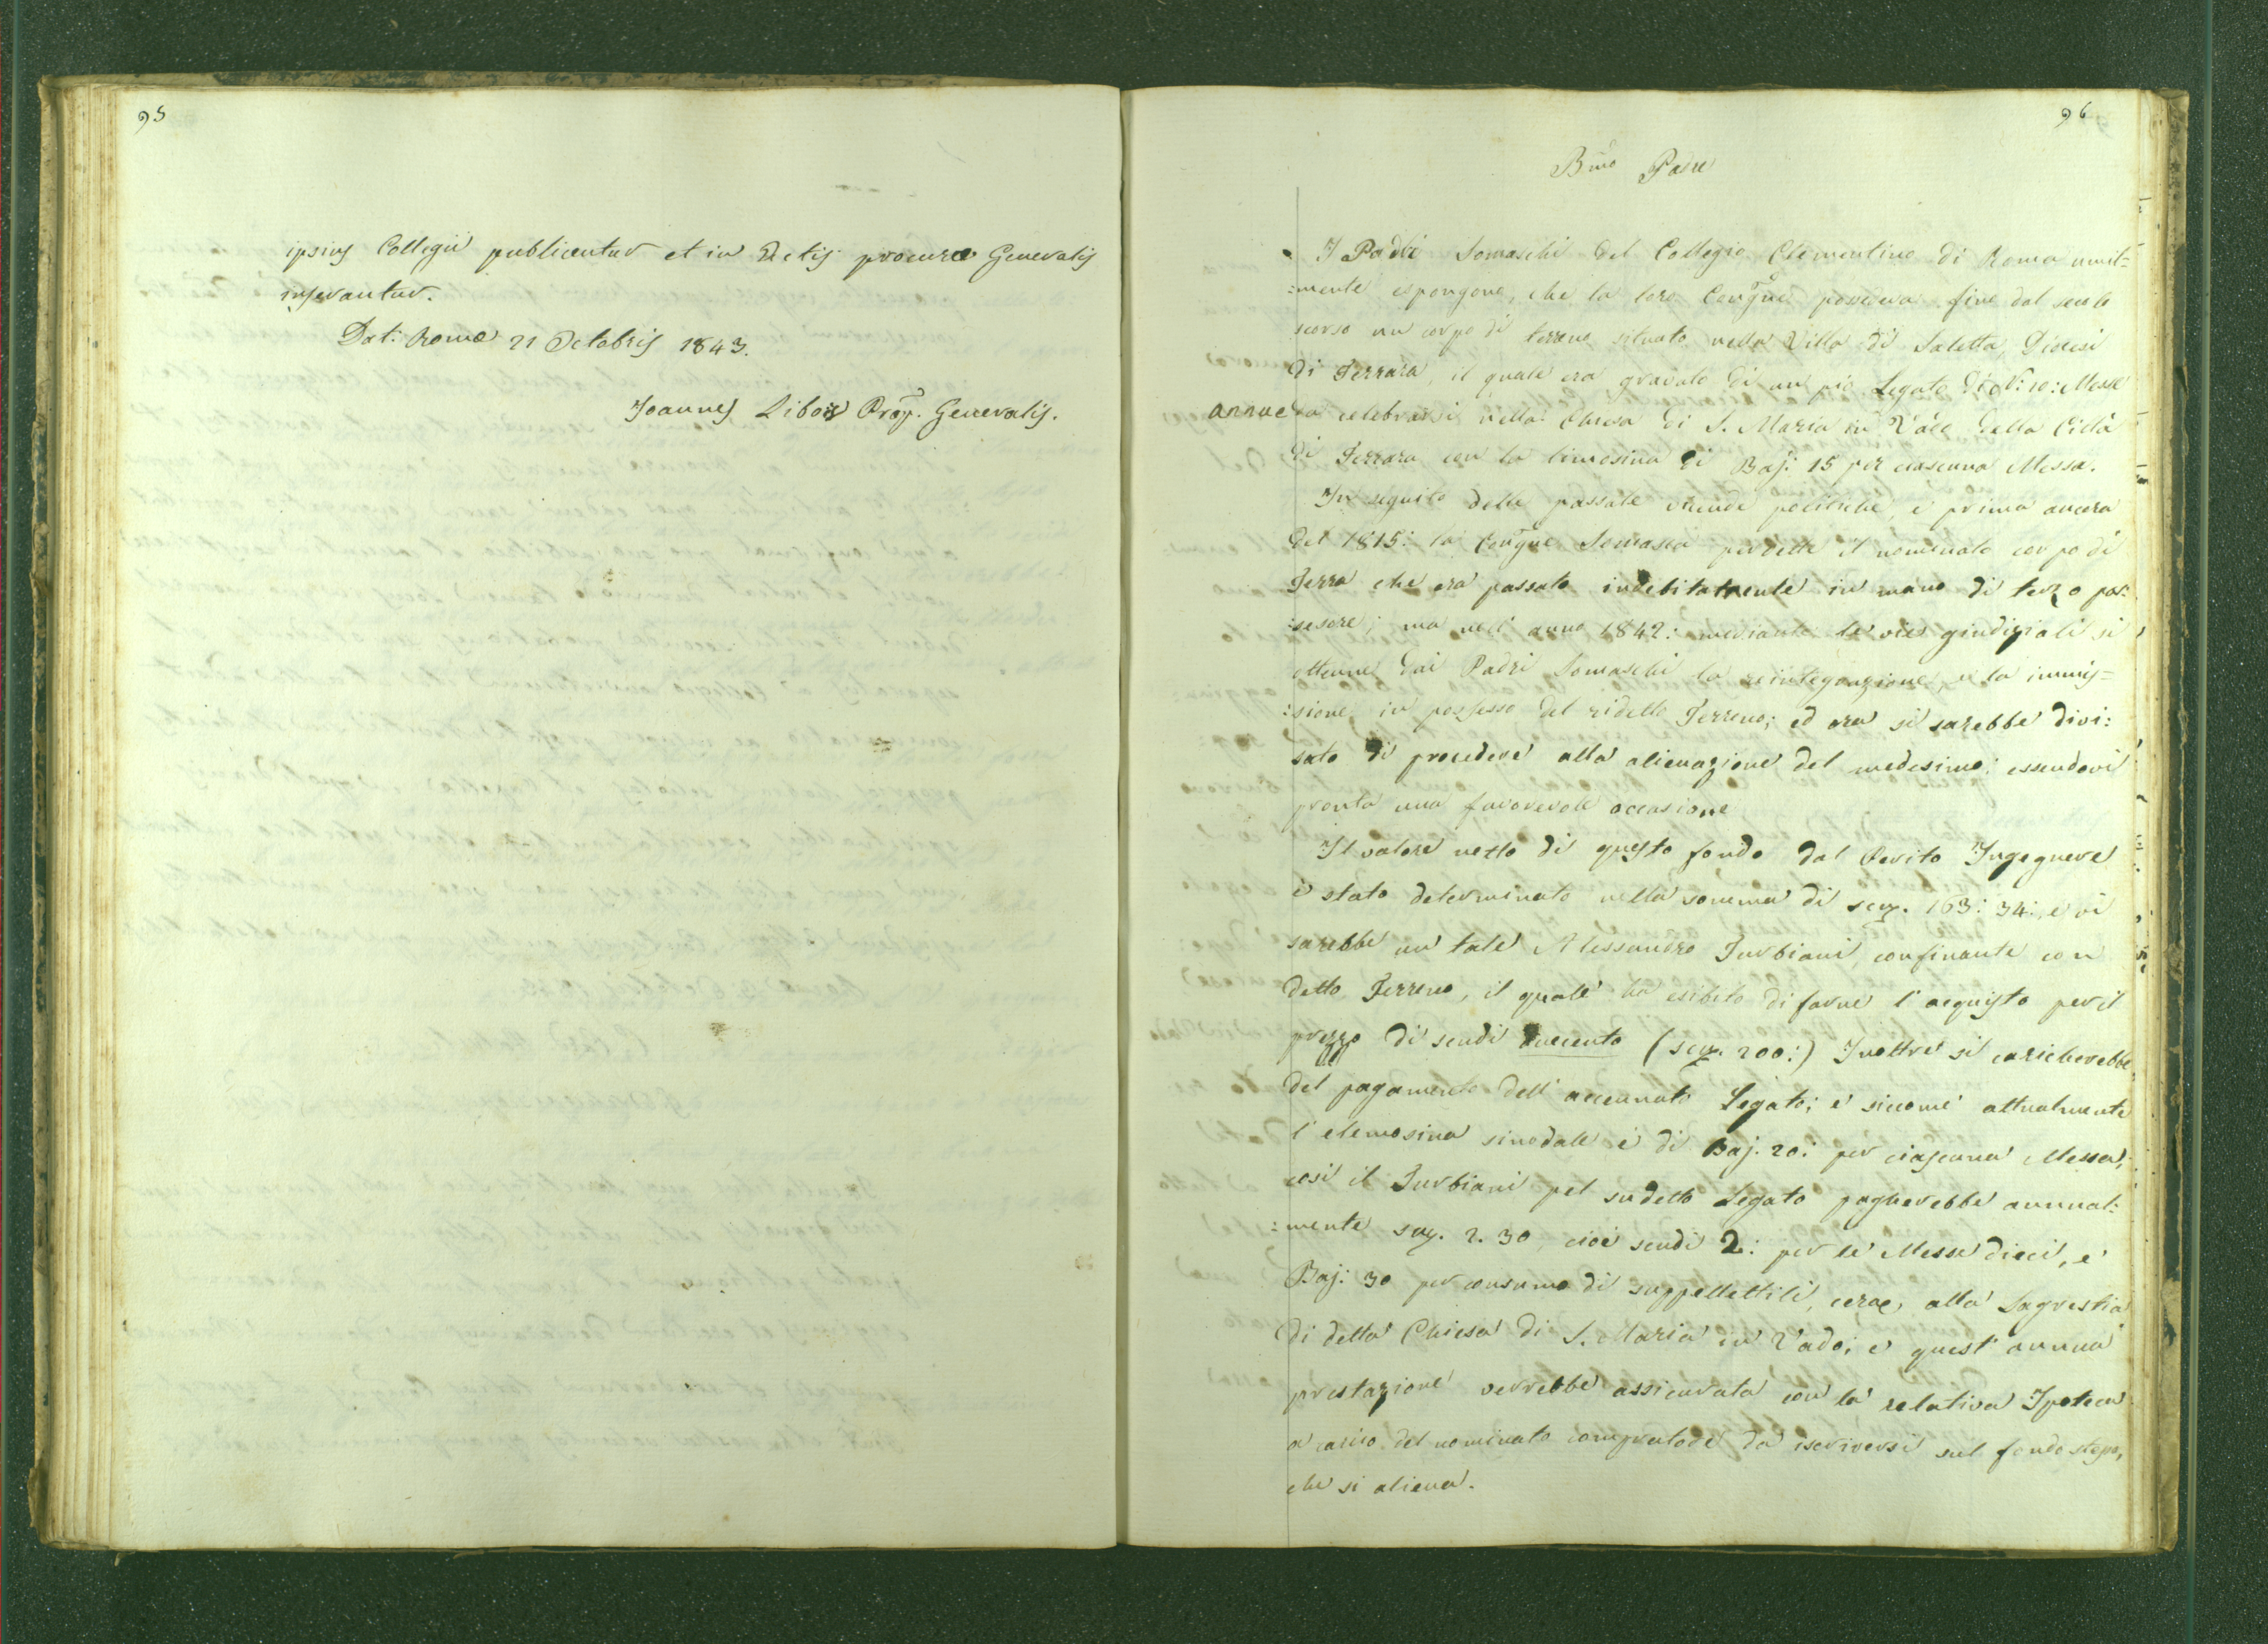 95
ipsius Collegii publicentur et in Actis procurae Generalis
inserantur.
Dat: Romae 21 Octobris 1843.
Joannes Libois Prop. Generalis.
96
Bmo Padre
I Padri Somaschi del Collegio Clementino di Roma umil=
=mente espongono, che la loro Congne possedeva fino dal secolo
scorso un corpo di terreno situato nella Villa di Saletta, Diocesi
di Ferrara, il quale era gravato di un pio Legato di N: 10: Messe
annue da celebrarsi nella Chiesa di S. Maria in Vado della Città
di Ferrara con la limosina di Baj: 15 per ciascuna Messa.
In seguito delle passate vicende politiche, e prima ancora
del 1815: la Congne Somasca perdette il nominato corpo di
Terra che era passato indebitatmente in mano di terzo pos:
:sesore; ma nell' anno 1842: mediante le vies giudiziali si
ottenne dai Padri Somaschi la reintegrazione, e la immis=
:sione in possesso del ridetto Terreno; ed ora si sarebbe divi:
sato di procedere alla alienazione del medesimo; essendovi
pronta una favorevole occasione
Il valore netto di questo fondo dal Perito Ingegnere
è stato determinato nella somma di scz. 163: 34:, e vi
sarebbe un tale Alessandro Turbiani, confinante con
detto Terreno, il quale ha esibito di farne l' acquisto per il
prezzo di scudi duecento (scz. 200:) Inoltre si caricherebbe
del pagamento dell' accennato Legato; e siccome attualmente
l' elemosina sinodale è di Baj. 20: per ciascuna Messa;
così il Turbiani pel sudetto Legato pagherebbe annual:
:mente scz. 2. 30, cioè scudi 2: per le Messe dieci, e
Baj: 30 per consumo di suppellettili, cera, alla Sagrestia
di detta Chiesa di S. Maria in Vado; e quest' annua
prestazione verrebbe assicurata con la relativa Ipoteca
a carico del nominato compratore da iscriversi sul fondo stesso,
che si aliena.